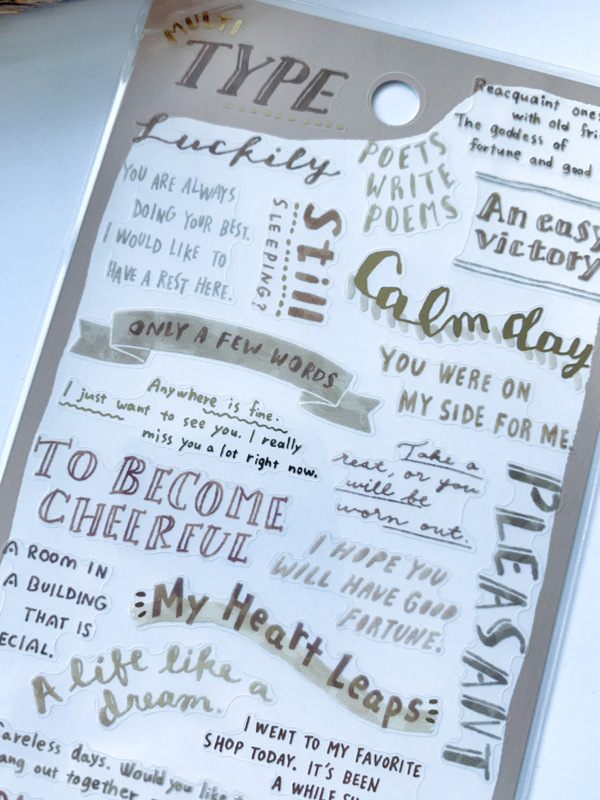 MULTI
TYPE
Reacquaint
with old
The goddess of
fortune and good
Luckily
POETS
WRITE
POEMS
YOU ARE ALWAYS
DOING YOUR BEST.
I WOULD LIKE TO
HAVE A REST HERE.
Still
SLEEPING?
An easy
victory
Calm day
ONLY A FEW WORDS
YOU WERE ON
MY SIDE FOR ME.
Anywhere is fine.
I just want to see you. I really
miss you a lot right now.
Take a
rest, or you
will be
worn out.
TO BECOME
CHEERFUL
PLEASANT
I HOPE YOU
WILL HAVE GOOD
FORTUNE.
A ROOM IN
A BUILDING
THAT IS
ECIAL.
My Heart Leaps
A life like a
dream.
I WENT TO MY FAVORITE
SHOP TODAY. IT'S BEEN
A WHILE
areless days. Would you like
ang out together